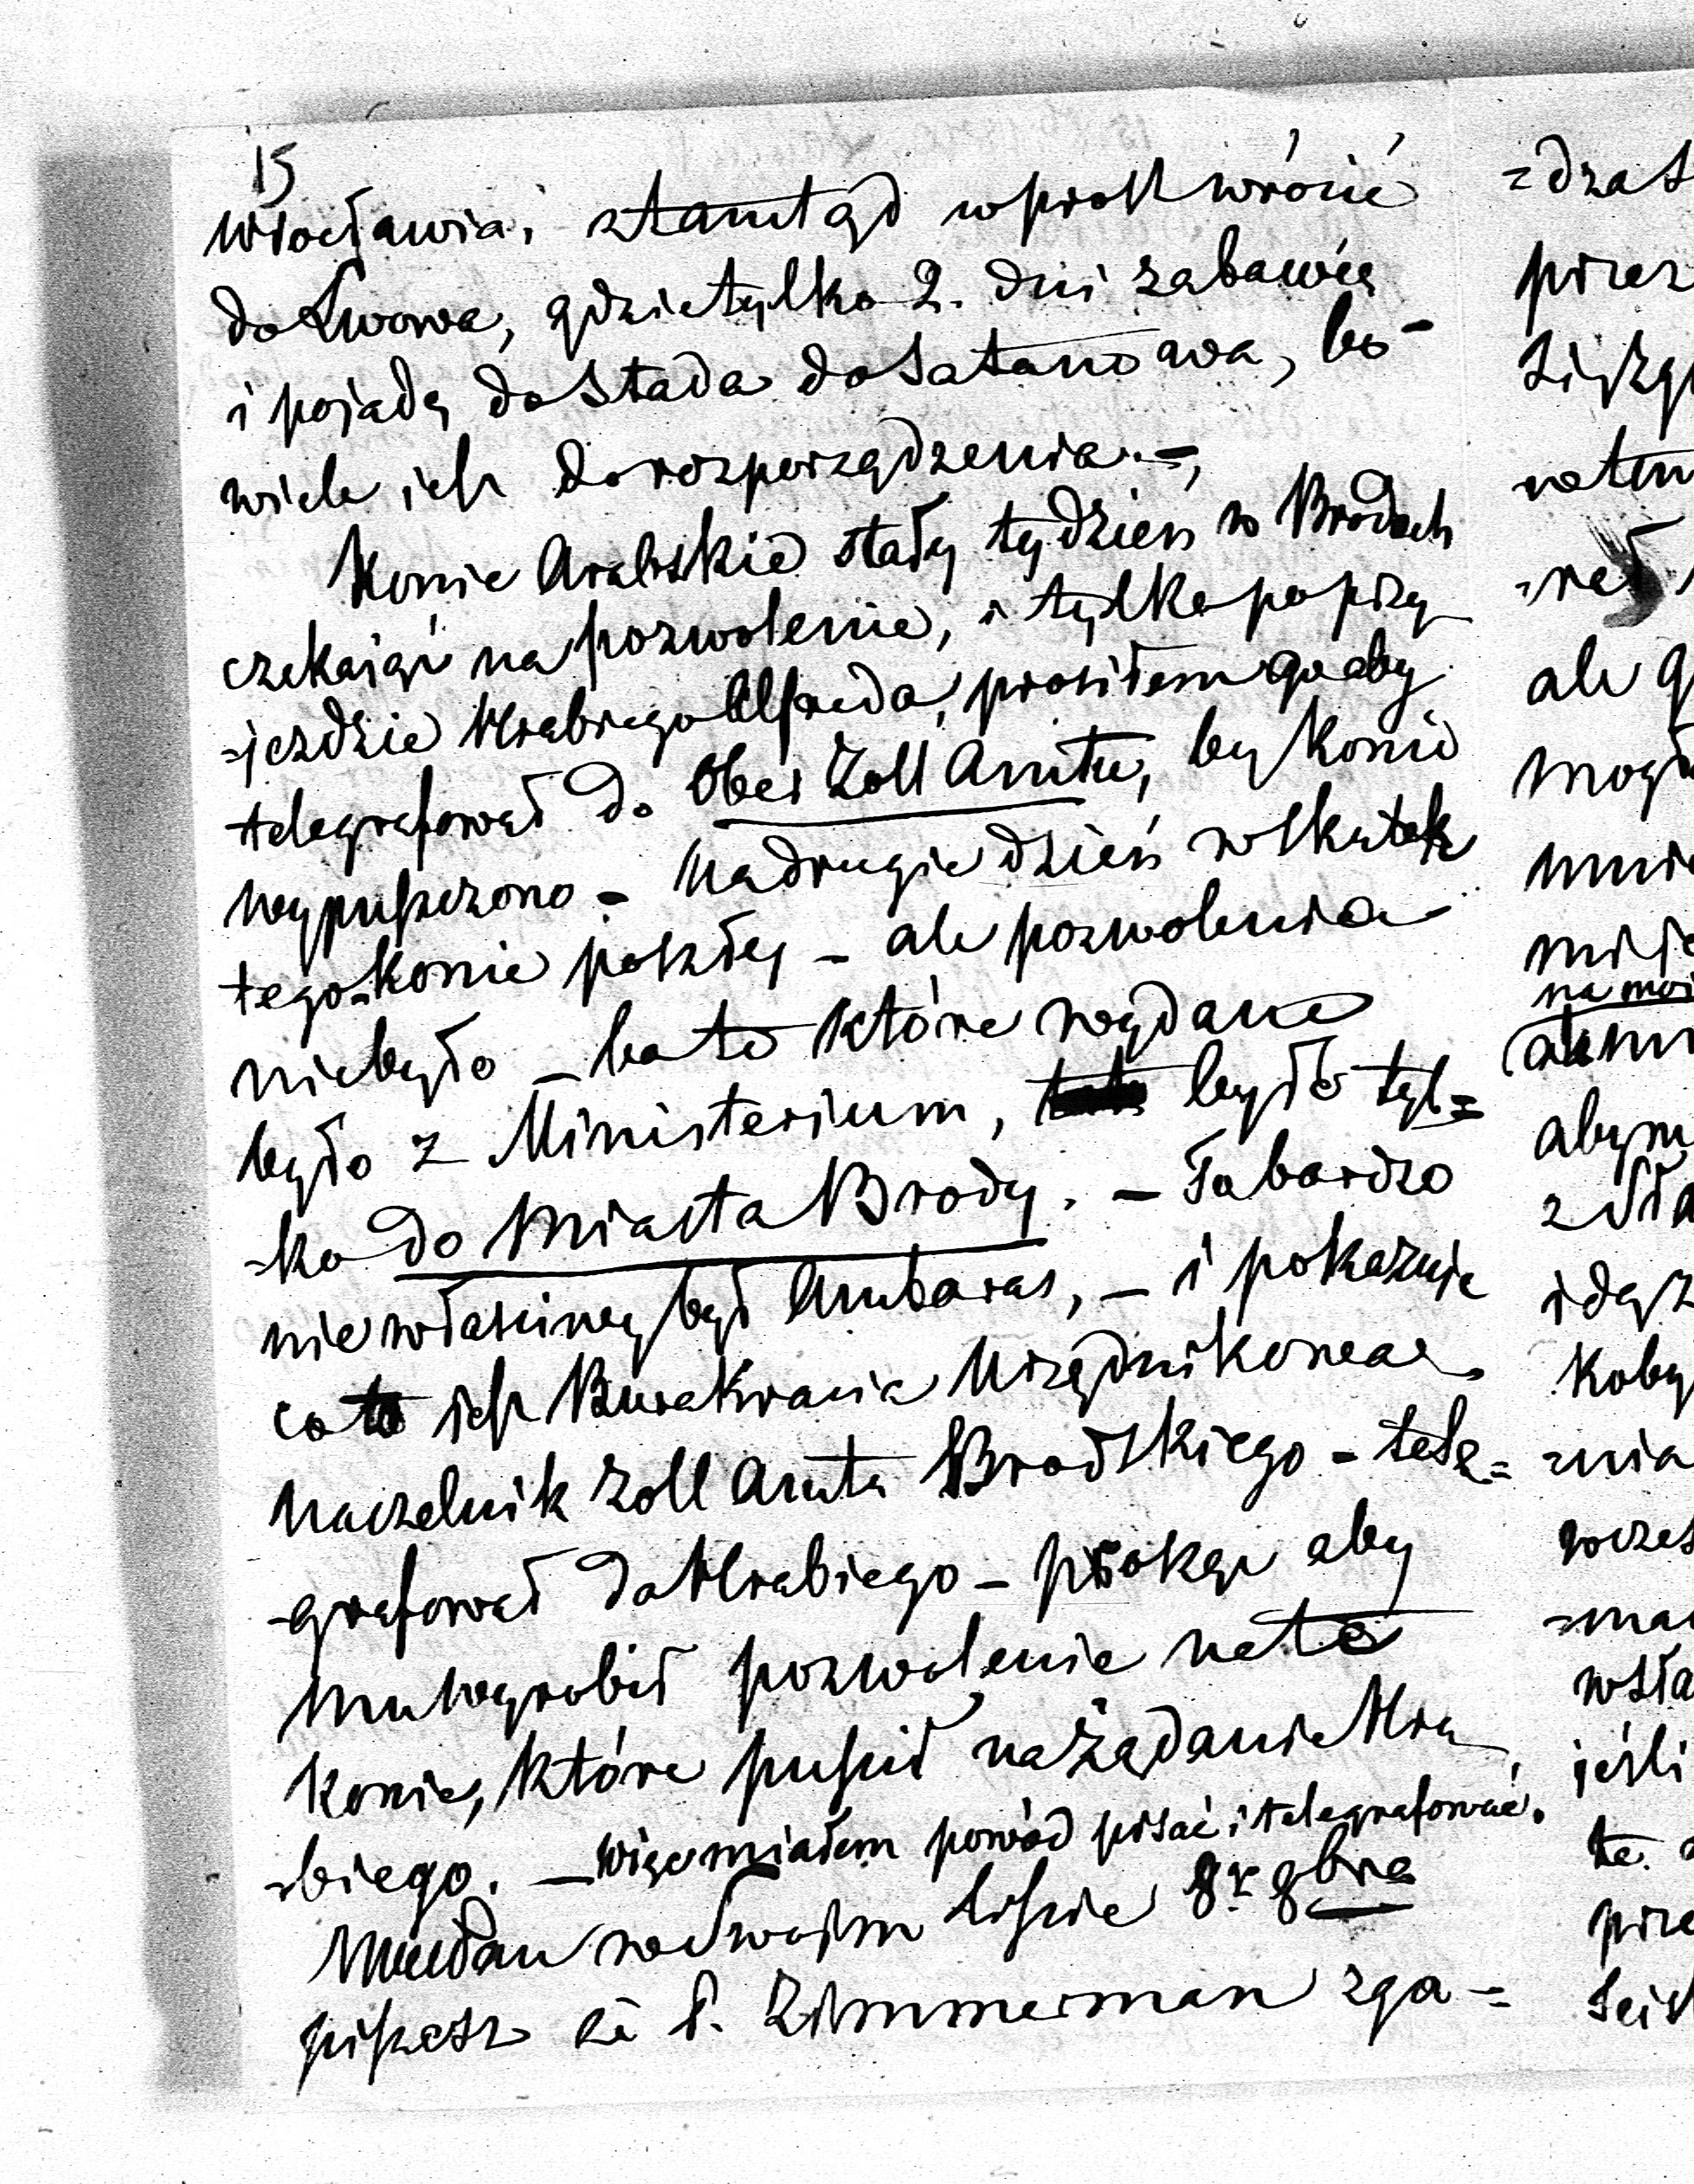 15
Włocławia, i stamtąd wprost wrócić
do Lwowa, gdzie tylko 2. dni zabawię
i pojadę do Stada do Satanowa, bo-
wiele ich do rozporządzenia. —
Konie Arabskie stały tydzień w Brodach
czekając na pozwolenie, i tylko po przy
-jezdzie Hrabiego Alfreda, prosiłem go aby
telegrafował do Ober Zoll Amtu, by konie
wypuszczono - Na drugie dzień w skutek
tego - konie poszły - ale pozwolenia
nie było - bo to które wydane
było z Ministerium, było tyl=
-ko do Miasta Brody. - To bardzo
nie właściwy był Ambaras, - i pokazuje
co to ich Burokracia Urzędnikowa.
Naczelnik Zoll Amtu Brodskiego - tele=
-grafował do Hrabiego - prosząc aby
mu wyrobił pozwolenie na te
konie, które puścił na żądanie Hra
-biego. - Więc miałem powód pisać i telegrafować.
w Swoim Liście 8r. 8bra
piszesz że P. Zimmerman zga=
=dzas
przez
ale
mog
mnie
na moi
abym
idąz
Koby
=nia
wcześ
=mar
wsta
jeśli
te.
prze